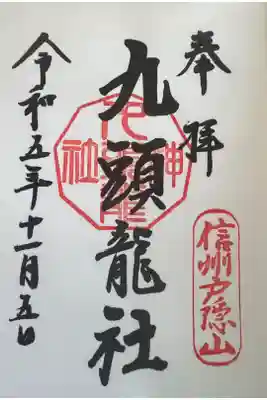 奉拝
信州戸隠山
九頭龍社
令和五年十一月五日